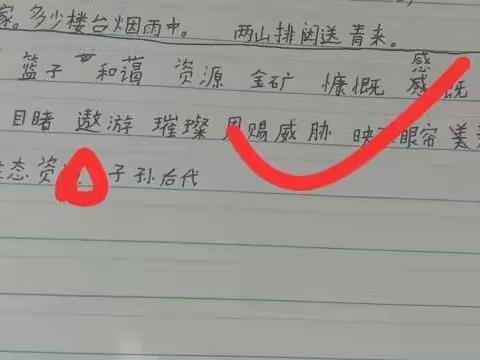 家。多少楼台烟雨中。 两山排闼送青来。
篮子 和蔼 资源 金矿 慷慨 感慨
目睹 遨游 璀璨 恩赐 威胁 映入眼帘 美
态资 子孙后代